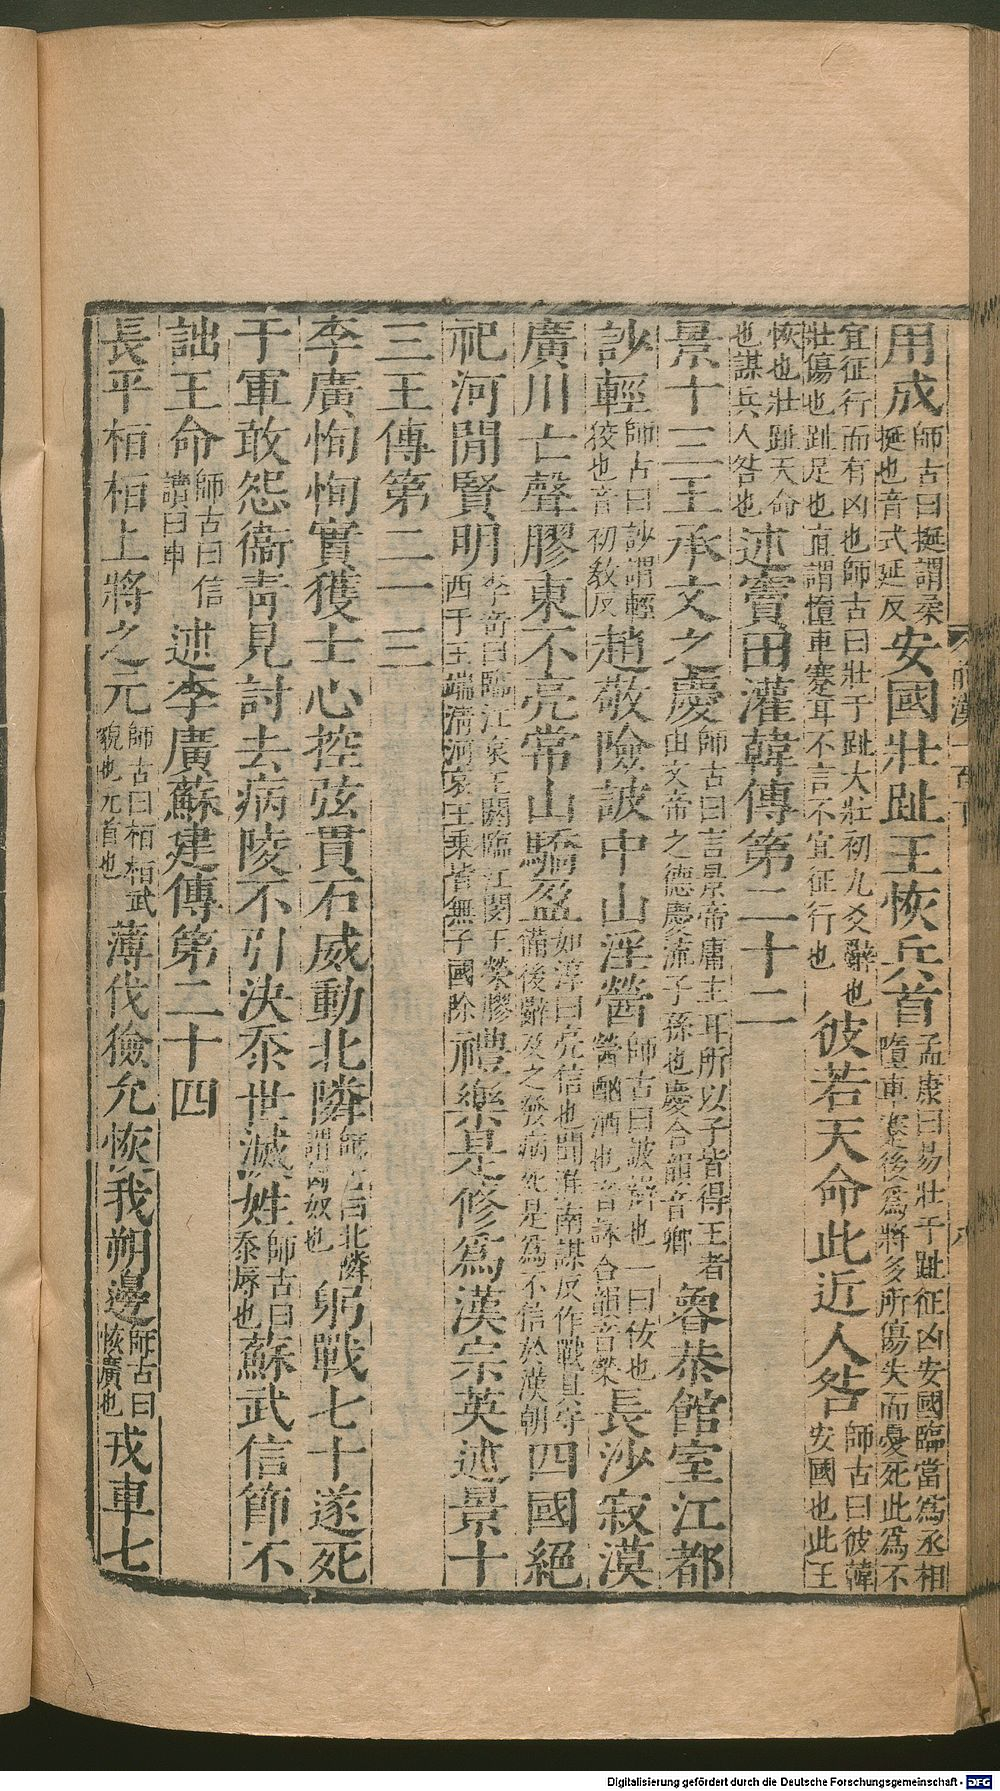 用成師古曰挻謂柔挻也音式延反安國壯趾王恢兵首孟康曰易壯于趾征凶安國臨當爲丞相墮車蹇後爲將多所傷失而憂死此爲不
宜征行而有凶也師古曰壯于趾大壯初九爻辭也壯傷也趾足也直謂憧車蹇耳不言不宜征行也彼若天命此近人咎師古曰彼韓安國也此王
恢也壯趾天命也謀兵人咎也述竇田灌韓傳第二十二
景十三王承文之慶師古曰言景帝庸主耳所以子皆得王者由文帝之德慶流子孫也慶合韻音鄉魯恭館室江都
訬輕師古曰訬謂輕狡也音初敎反趙敬險詖中山淫醟師古曰詖辯也一曰佞也醟酗酒也音詠合韻音榮長沙寂漠
廣川亡聲膠東不亮常山驕盈如淳曰亮信也聞淮南謀反作戰具守備後辭及之發病死是爲不信於漢朝四國絕
祀河閒賢明李奇曰臨江哀王閼臨江閔王榮膠西于王端淸河哀王乘皆無子國除禮樂是修爲漢宗英述景十
三王傳第二十三
李廣恂恂實獲士心控弦貫石威動北隣師古曰北隣謂匈奴也躬戰七十遂死
于軍敢怨衞靑見討去病陵不引決忝世滅姓師古曰忝辱也蘇武信節不
詘王命師古曰信讀曰申述李廣蘇建傳第二十四
長平桓桓上將之元師古曰桓桓武貌也元首也薄伐獫允恢我朔邊師古曰恢廣也戎車七
Digitalisierung gefördert durch die Deutsche Forschungsgemeinschaft - DFG